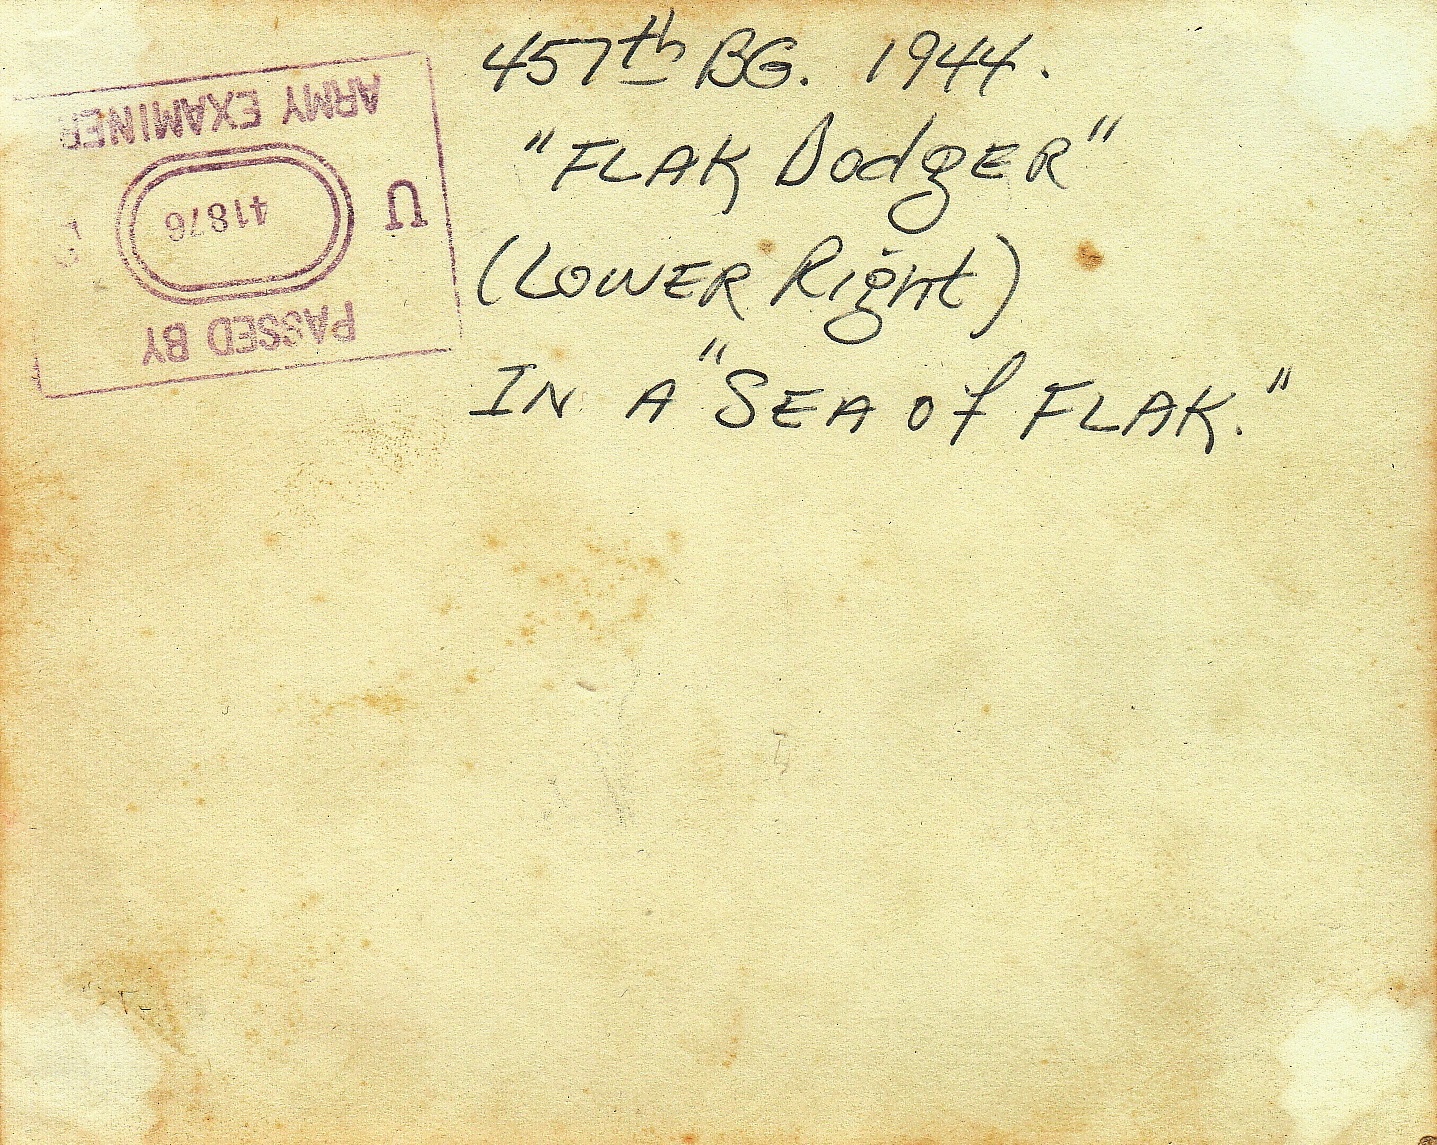 457th BG. 1944.
"FLAK DodgER"
(LOWER Right)
IN A "SEA of FLAK."
PASSED BY
U
41876
ARMY EXAMINER